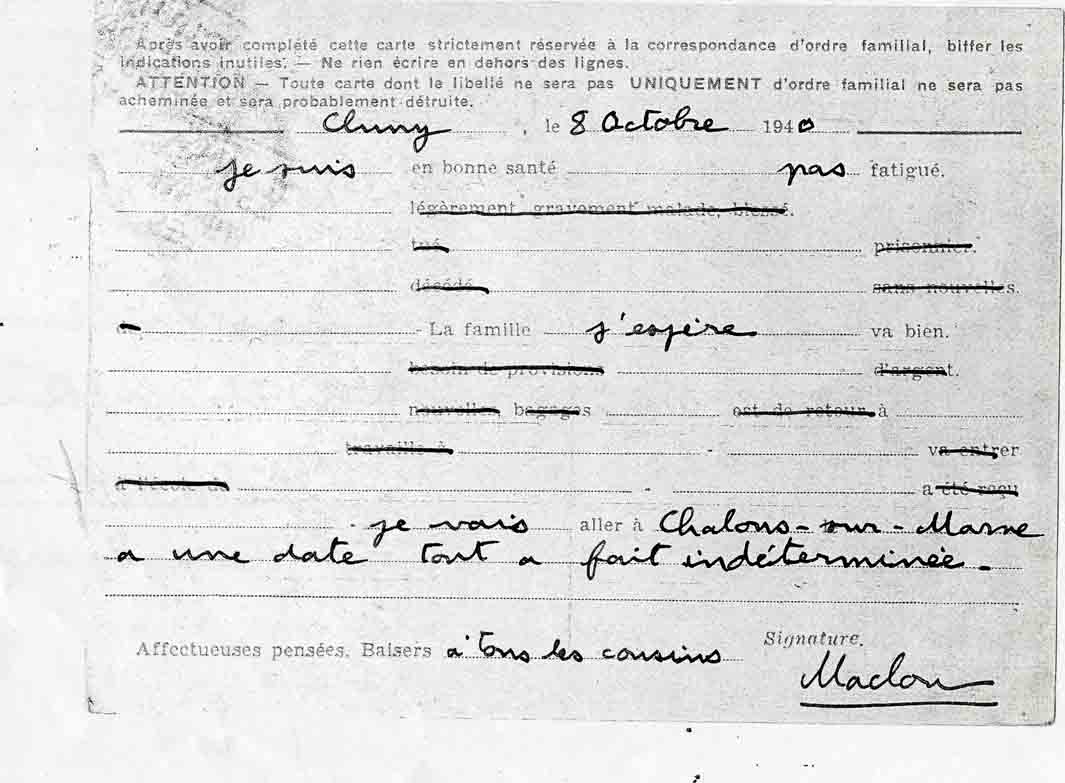 Après avoir complété cette carte strictement réservée à la correspondance d'ordre familial, biffer les
indications inutiles. — Ne rien écrire en dehors des lignes.
ATTENTION — Toute carte dont le libellé ne sera pas UNIQUEMENT d'ordre familial ne sera pas
acheminée et sera probablement détruite.
Cluny, le 8 Octobre 1940
je suis en bonne santé pas fatigué.
légèrement gravement malade, blessé.
tué prisonnier.
décédé sans nouvelles.
de - La famille j'espère va bien.
besoin de provisions d'argent.
nouvelles, bagages est de retour à
travaille à - va entrer
à l'école de - a été reçu
- je vais aller à Chalons-sur-Marne
a une date tout a fait indéterminée.
Affectueuses pensées. Baisers à tous les cousins Signature.
Maclou